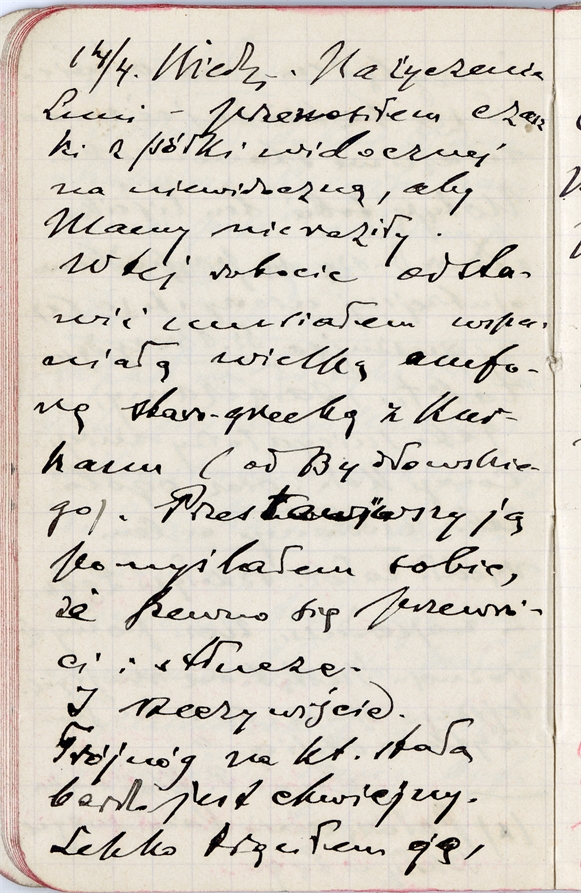 14/4. Niedz. Na życzenie
Luni - przenosiłem czasz
ki z półki widocznej
na niewidoczną, aby
Mamy nie raziły.
W tej robocie odsta-
wić musiałem wspa-
niałą wielką amfo-
rę staro-grecką z Kau-
kazu (od Bydłowskie-
go). Przestawiwszy ją
pomyślałem sobie,
że pewno się przewró-
ci i stłucze.
I rzeczywiście.
Trójnóg na kt. stała
bardz. jest chwiejny.
Lekko trąciłem ją,